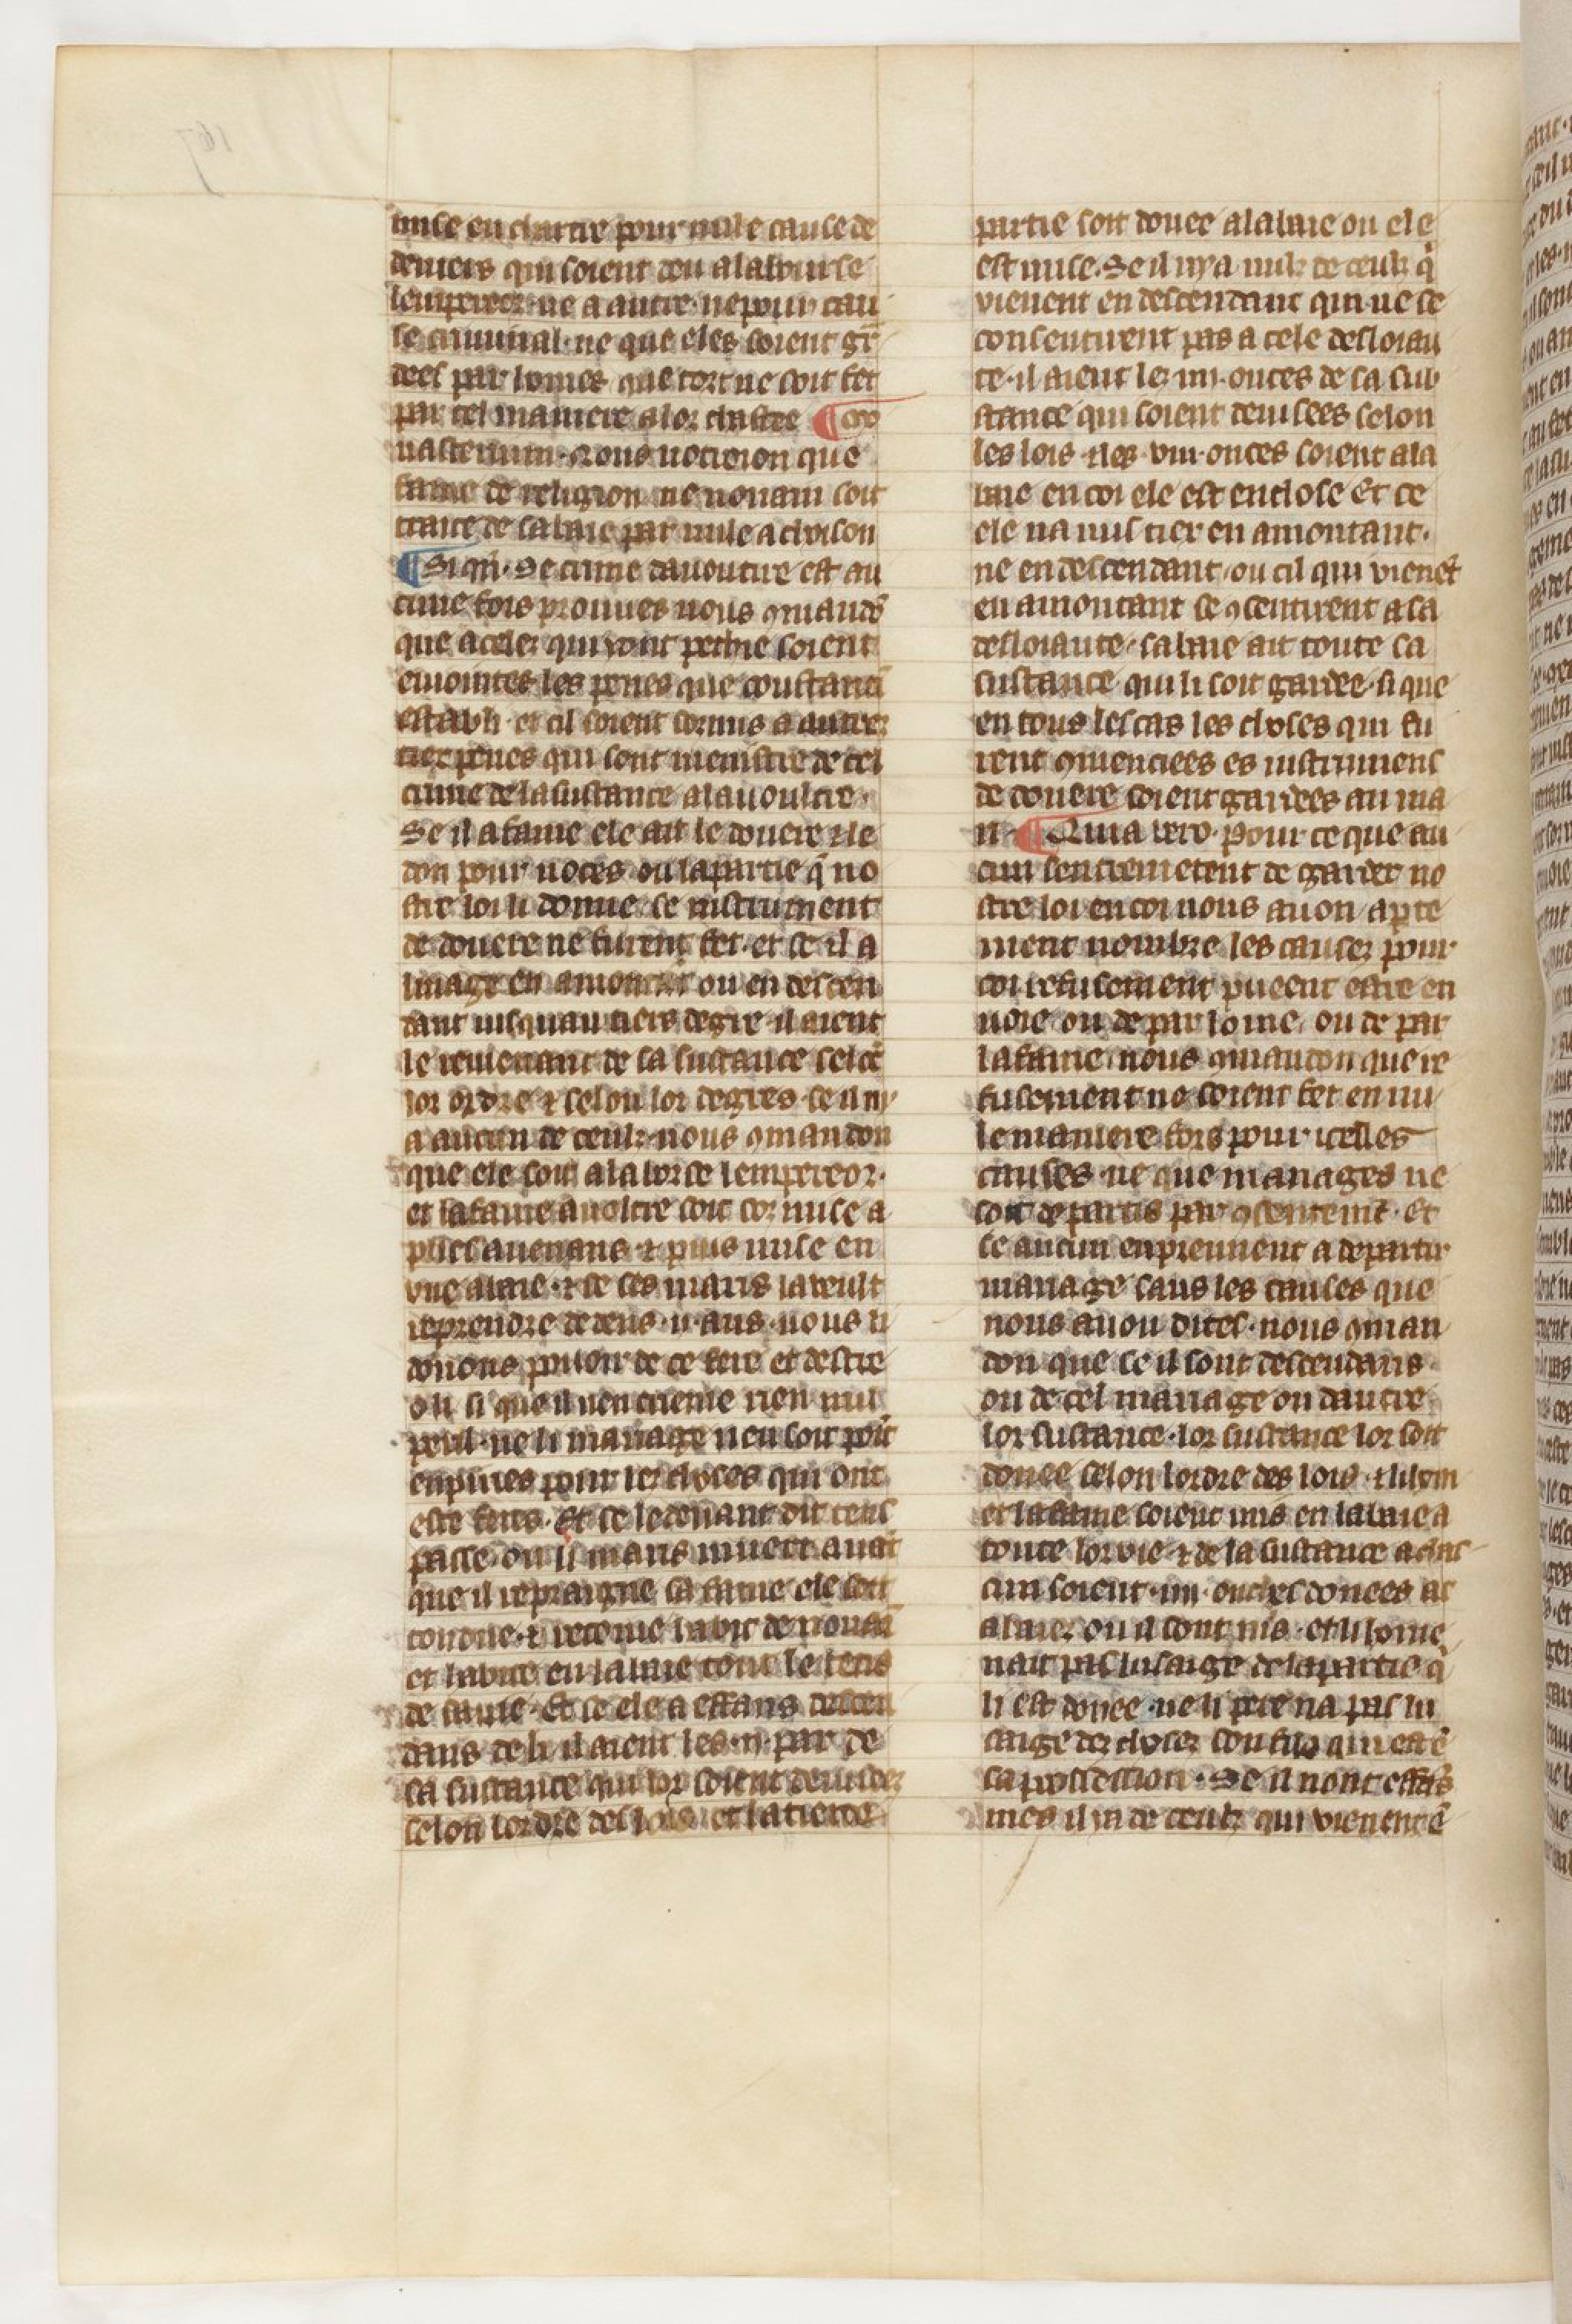 mise en chartre pour nule cause de
deniers qui soient deu a la borse
lempereor ne a autre ne pour cau
se criminal ne que eles soient gr
dees par homes que tort ne soit fet
par tel maniere a lor chastee ¶
nasterium. Nous notroion que
fame de religion ne nonain soit
traite de labaie par nule achoison
¶ Si qn. Se crime davoutire est au
cune fois prouves nous qmando
que a celez qui sont soient
enjointes les penes que constanci
establi. et cil soient sormis a autrez
tiex penes qui sont menistre de cel
crime de la sustance a lavoultre.
Se il a fame ele ait le douere ⁊ le
don pour noces ou la partie q̄ no
stre loi li donne se instrument
de douere ne furent fet. et se il a
linage en amontant ou en descen
dant jusquau tiers degre il aient
le remenant de sa sustance selōc
lor ordre ⁊ selon lor degres. se il ni
a aucun de ceulz nous qmandon
que ele soit a la borse lempereor.
et la fame avoltre soit sozmise a
plaies avenans ⁊ puis mise en
une abaie. ⁊ se ses maris la veult
reprendre dedens .ii. ans. nous li
donons pouoir de ce fere et destre
o li si que il nen crieme rien nul
peril. ne li mariage nen soit poīt
enpiries pour lez choses qui ont
este fetes. Et se le devant dit tens
passe ou li maris muert avāt
que il repraigne sa fame ele soit
tondue. ⁊ recoive labit de nonaī
et habite en labaie tout le tens
de sa vie. Et se ele a effans descen
dans de li il aient les .ii. par de
sa sustance qui lor soient devisez
selon lordre des lois et la tierce
partie soit donee a labaie ou ele
est mise. Se il ny a nulz de ceulz q̄
vienent en descendant qui ne se
consentirent pas a cele desloiau
te. il aient lez .iiii. onces de sa sub
stance qui soient devisees selon
les lois ⁊ les .viii. onces soient a la
baie en coi ele est enclose Et se
ele na nul tier en amontant.
ne en descendant, ou cil qui vienēt
en amontant se qsentirent a la
desloiaute. labaie ait toute sa
sustance. qui li soit gardee. si que
en tous les cas les choses qui fu
rent qvenciees es instrumens
de douere soient gardees au ma
ri. ¶ Quia vero. Pour ce que au
cun sentremetent de garder no
stre loi en coi nous avon aperte
ment nombre les causez pour
coi refusement pueent estre en
voie ou de par lome. ou de par
la fame. nous qmandon que re
fusement ne soient fet en nu
le maniere fors pour icelles
causes. ne que mariages ne
soit departis par qsentemēt. Et
se aucun enprennent a departir
mariage sans les causes que
nous avon dites. nous qman
don que se il sont descendans
ou de cel mariage ou dautre
lor sustance. lor sustance lor soit
donee selon lordre des lois. ⁊ li hom
et la fame soient mis en labaie a
toute lor vie ⁊ de la sustance a chas
cun soient .iiii. onces donees as
abaiez ou il sont mis. et li home
nait pas lusaige de la partie q̄
li est donee. ne li pere na pas lu
saige dez chosez son fils qui est ē
sa possession. Se il nont effās
mes il ia de ceulz qui vienent ē